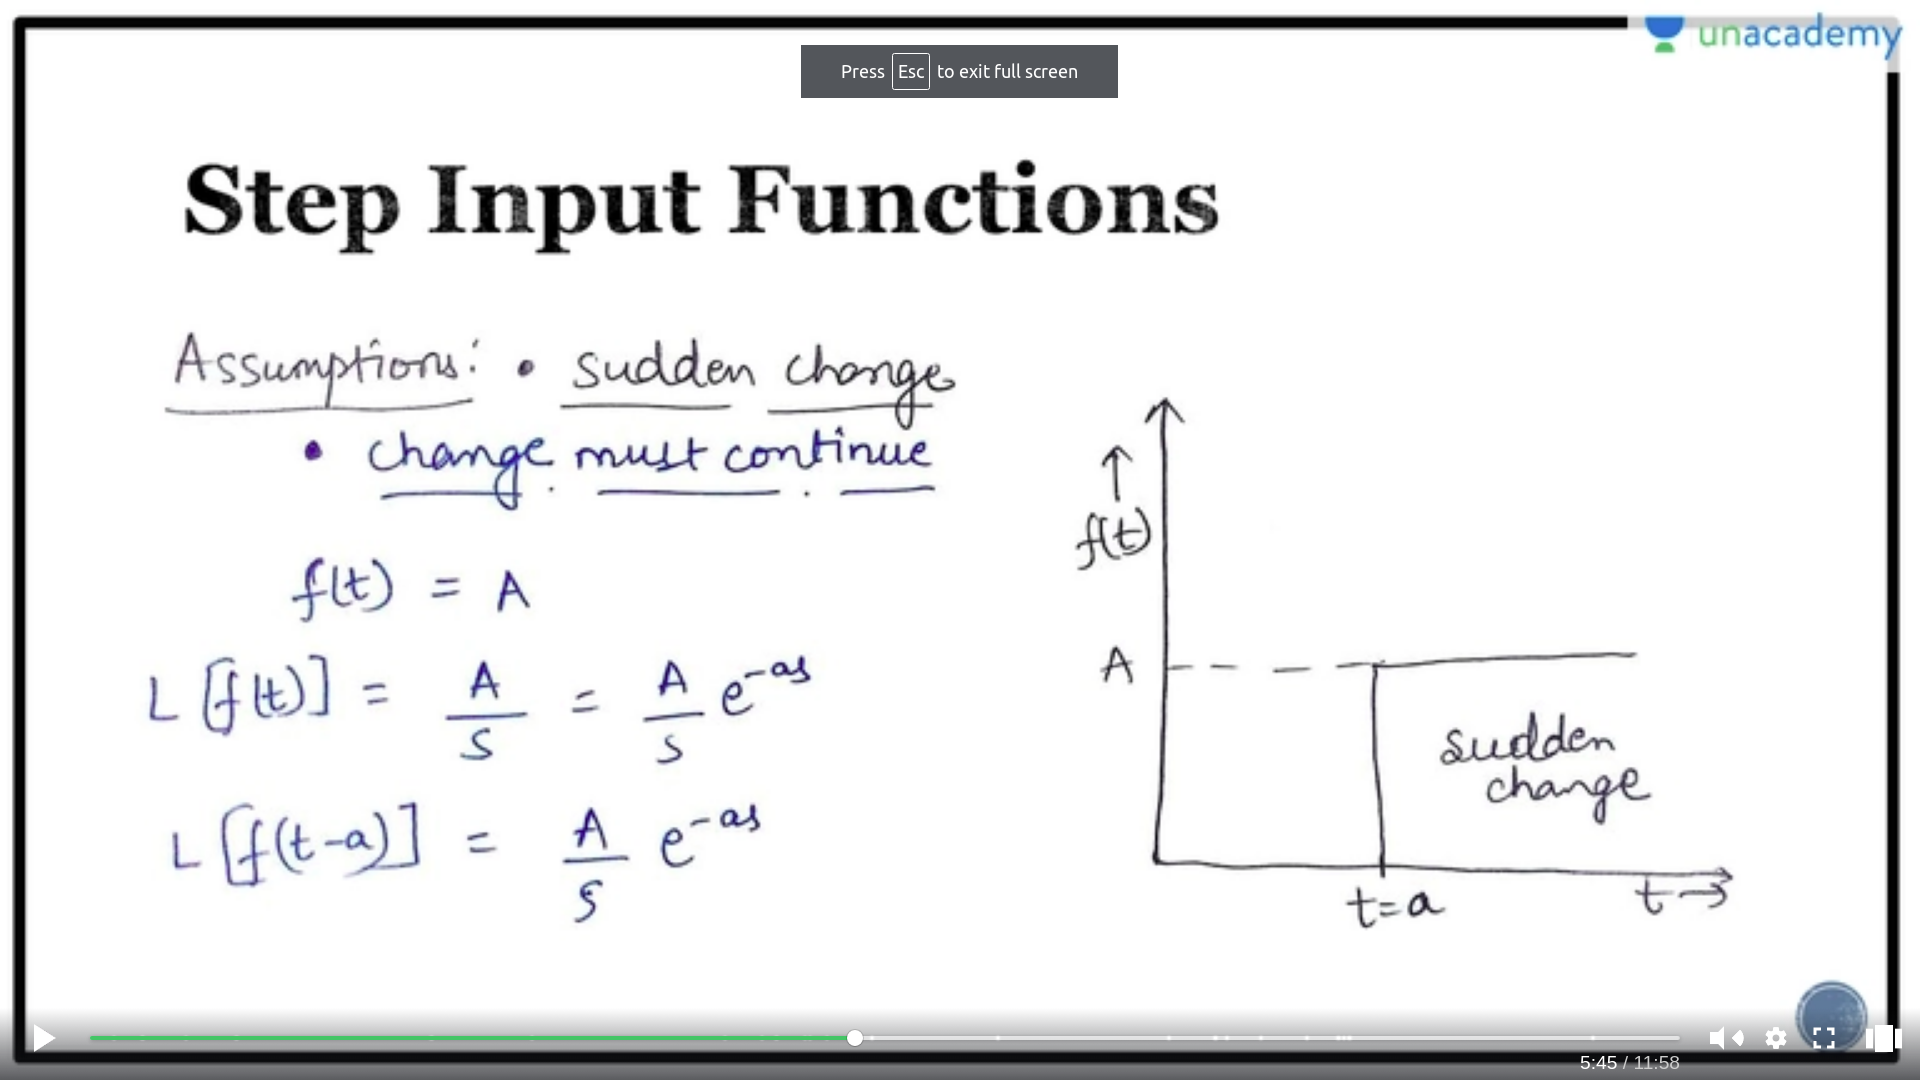 unacademy
Press Esc to exit full screen
Step Input Functions
Assumptions: • sudden change
• change must continue
f(t) = A
L [f(t)] = A/s = A/s e^-as
L [f(t-a)] = A/s e^-as
↑
f(t)
A
sudden
change
t=a
t→
5:45 / 11:58